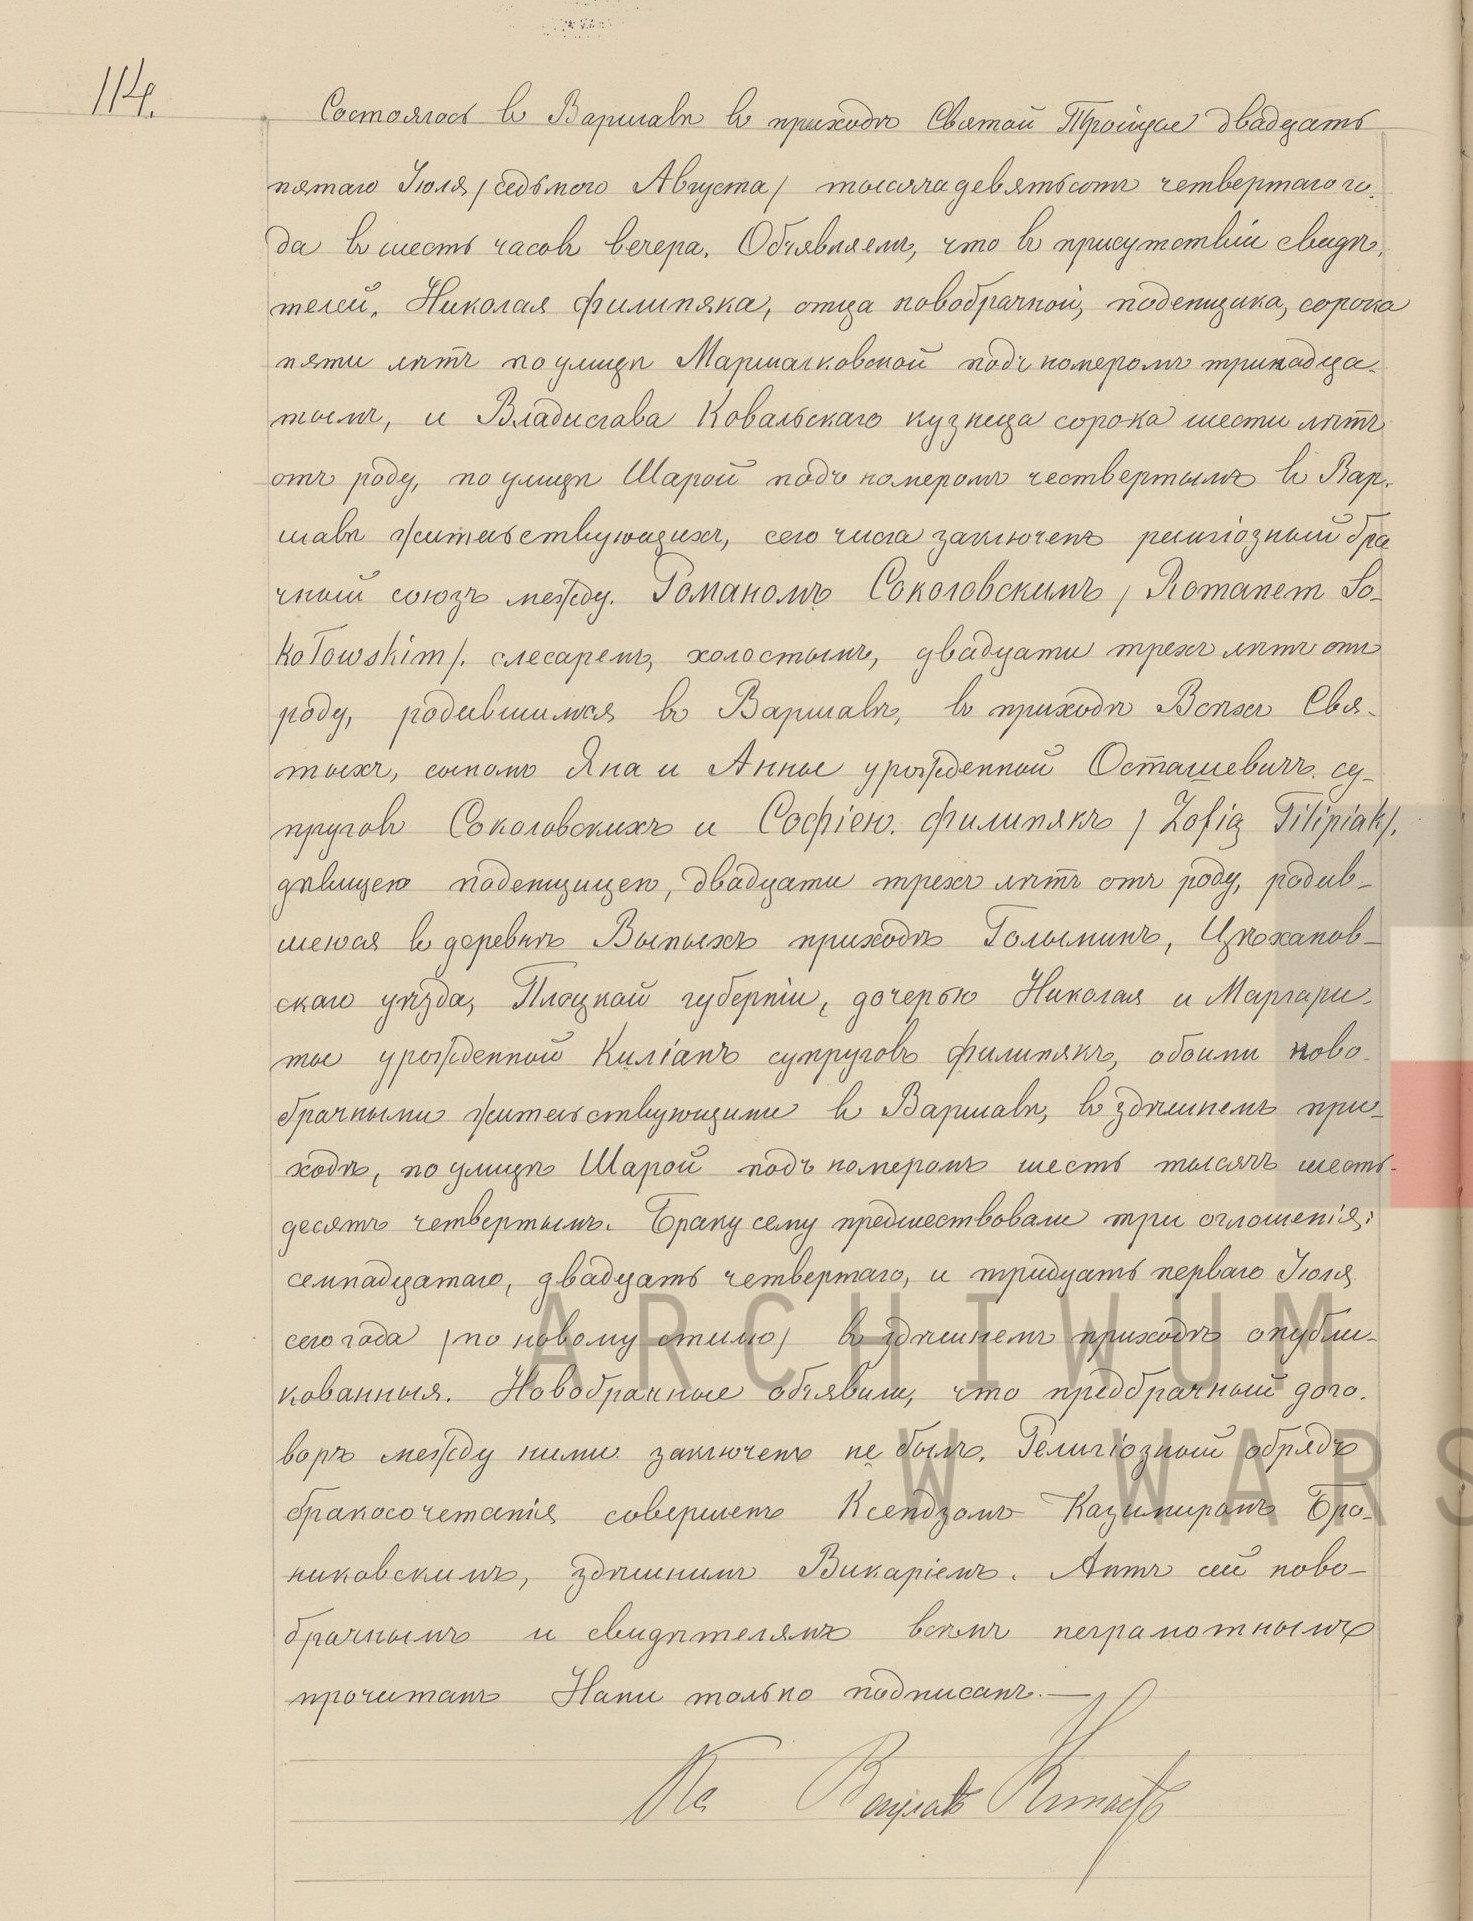 114.
Состоялось въ Варшавѣ въ приходѣ Святой Троицы двадцать
пятаго Іюля /седьмого Августа/ тысяча девятьсотъ четвертаго го-
да въ шесть часовъ вечера. Объявляемъ, что въ присутствіи свидѣ-
телей, Николая Филипяка, отца новобрачной, поденщика, сорока
пяти лѣтъ по улицѣ Маршалковской подъ номеромъ тринадца-
тымъ, и Владислава Ковальскаго кузнеца сорока шести лѣтъ
отъ роду, по улицѣ Шарой подъ номеромъ чествертымъ въ Вар-
шавѣ жительствующихъ, сего числа заключенъ религіозный бра
чный союзъ между. Романомъ Соколовскимъ / Romanem So-
kołowskim/. слесаремъ, холостымъ, двадцати трехъ лѣтъ отъ
роду, родившимся въ Варшавѣ, въ приходѣ Всѣхъ Свя-
тыхъ, сыномъ Яна и Анны урожденной Осташевичъ су-
пруговъ Соколовскихъ и Софіею. Филипякъ / Zofią Filipiak/.
дѣвицею поденщицею, двадцати трехъ лѣтъ отъ роду, родив-
шеюся въ деревнѣ Выпыхъ приходѣ Голыминъ, Цѣхановъ-
скаго уѣзда, Плоцкой губерніи, дочерью Николая и Маргари-
ты урожденной Киліанъ супруговъ Филипякъ, обоими ново-
брачными жительствующими въ Варшавѣ, въ здѣшнемъ при-
ходѣ, по улицѣ Шарой подъ номеромъ шесть тысячъ шесть-
десятъ четвертымъ. Браку сему предшествовали три оглошенія:
семнадцатаго, двадцать четвертаго, и тридцать перваго Іюля
сего года /по новому стилю/ въ здѣшнемъ приходѣ опубли-
кованныя. Новобрачные объявили, что предбрачный дого-
воръ между ними заключенъ не былъ. Религіозный обрядъ
бракосочетанія совершенъ Ксендзомъ Казимиромъ Бро-
никовскимъ, здѣшнимъ Викаріемъ. Актъ сей ново-
брачнымъ и свидѣтелямъ всѣмъ неграмотнымъ
прочитанъ Нами только подписанъ.—
Кс
ARCHIWUM
W WARS